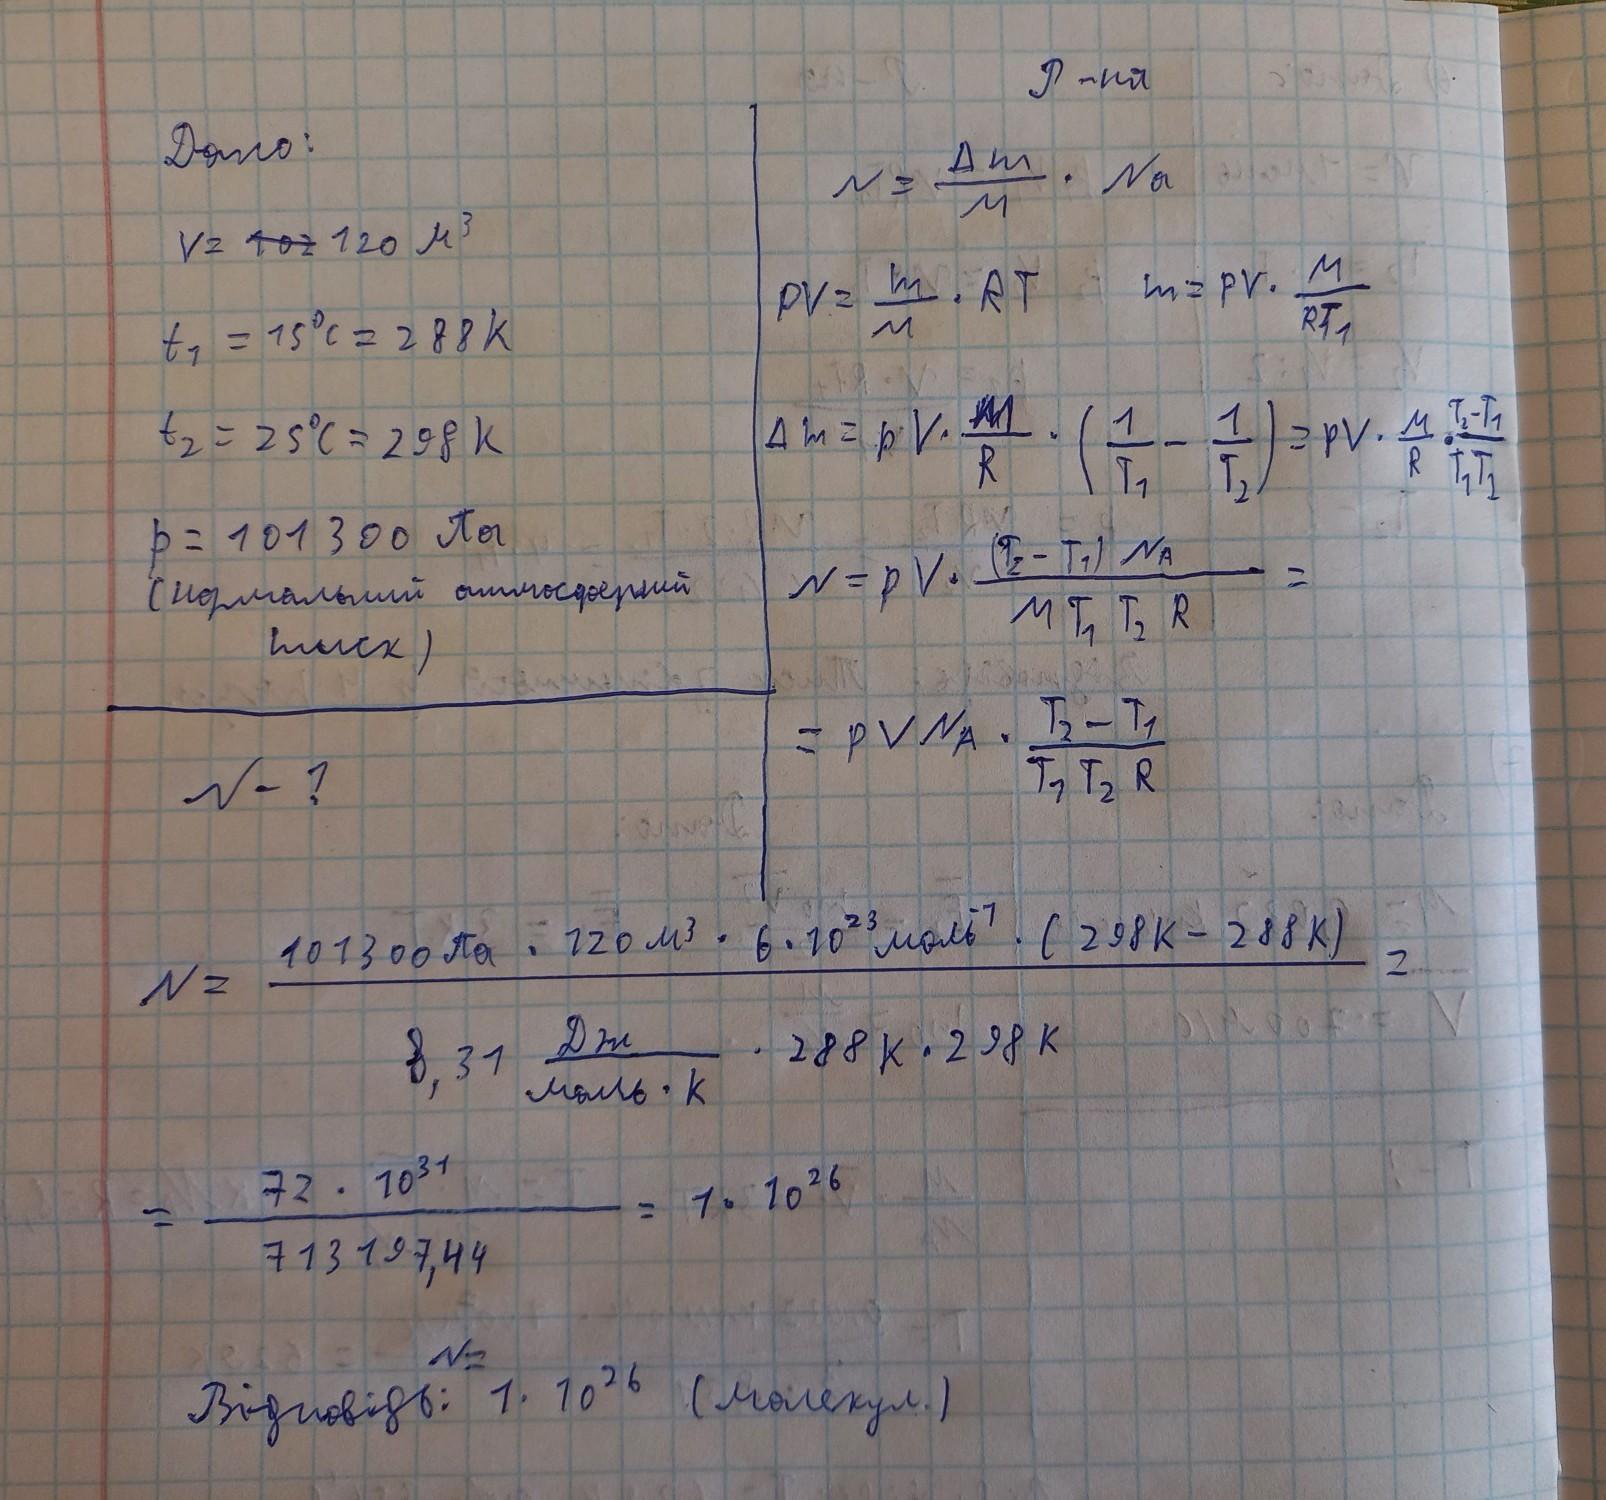 Дано:
V= 102 120 м³
t₁ = 15⁰C = 288 K
t₂ = 25⁰C = 298 K
p = 101300 Па
(нормальний атмосферний
тиск)
N - ?
Р-ня
N = Δm/M · Na
pV = m/M · RT m = pV · M/RT₁
Δm = pV · M/R · (1/T₁ - 1/T₂) = pV · M/R · T₂-T₁/T₁T₂
N = pV · (T₂ - T₁) NA / M T₁ T₂ R =
= pVNA · T₂ - T₁ / T₁ T₂ R
N = 101300 Па · 120 м³ · 6 · 10²³ моль⁻¹ · (298K - 288K) =
8,31 Дж/моль · K · 288 K · 298 K
= 72 · 10³¹ / 713197,44 = 1 · 10²⁶
N=
Відповідь: 1 · 10²⁶ (молекул.)